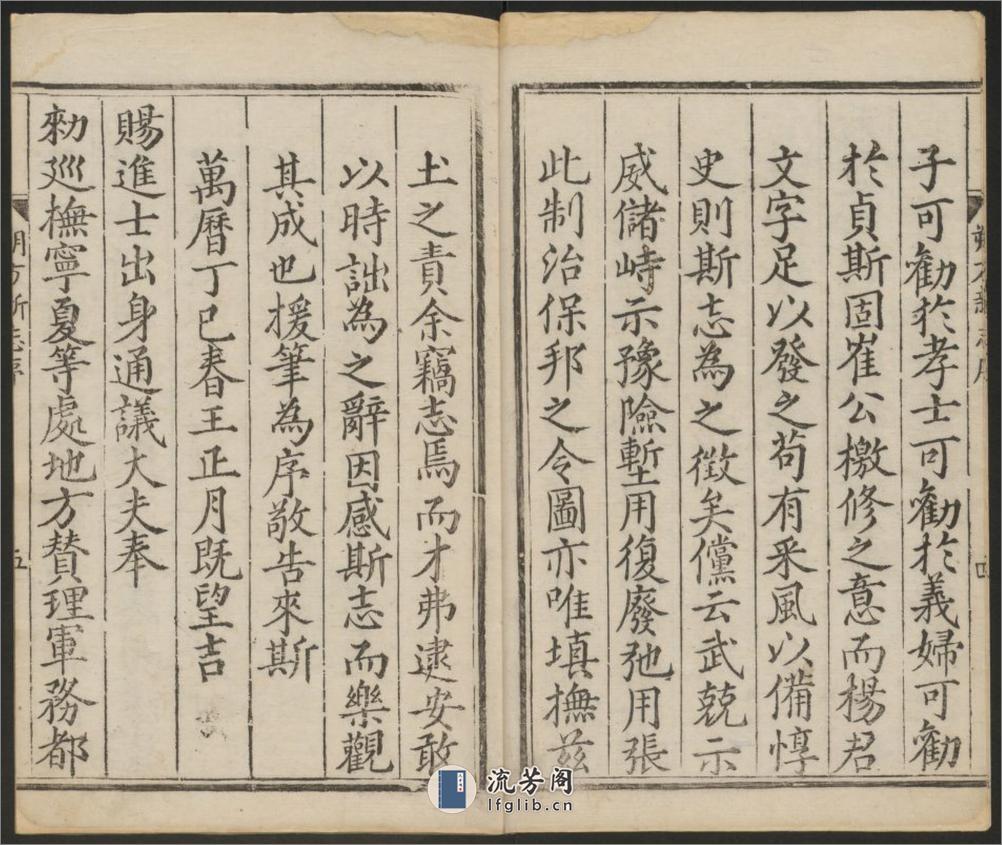 子可勸於孝士可勸於義婦可勸
於貞斯固崔公檄修之意而楊君
文字足以發之苟有采風以備惇
史則斯志為之徵矣儻云武兢示
威儲峙示豫險塹用復廢弛用張
此制治保邦之令圖亦唯填撫茲
四
土之責余竊志焉而才弗逮安敢
以時詘為之辭因感斯志而樂觀
其成也援筆為序敬告來斯
萬曆丁巳春王正月既望吉
賜進士出身通議大夫奉
勑巡撫寧夏等處地方贊理軍務都
五
流芳阁
lfglib.cn